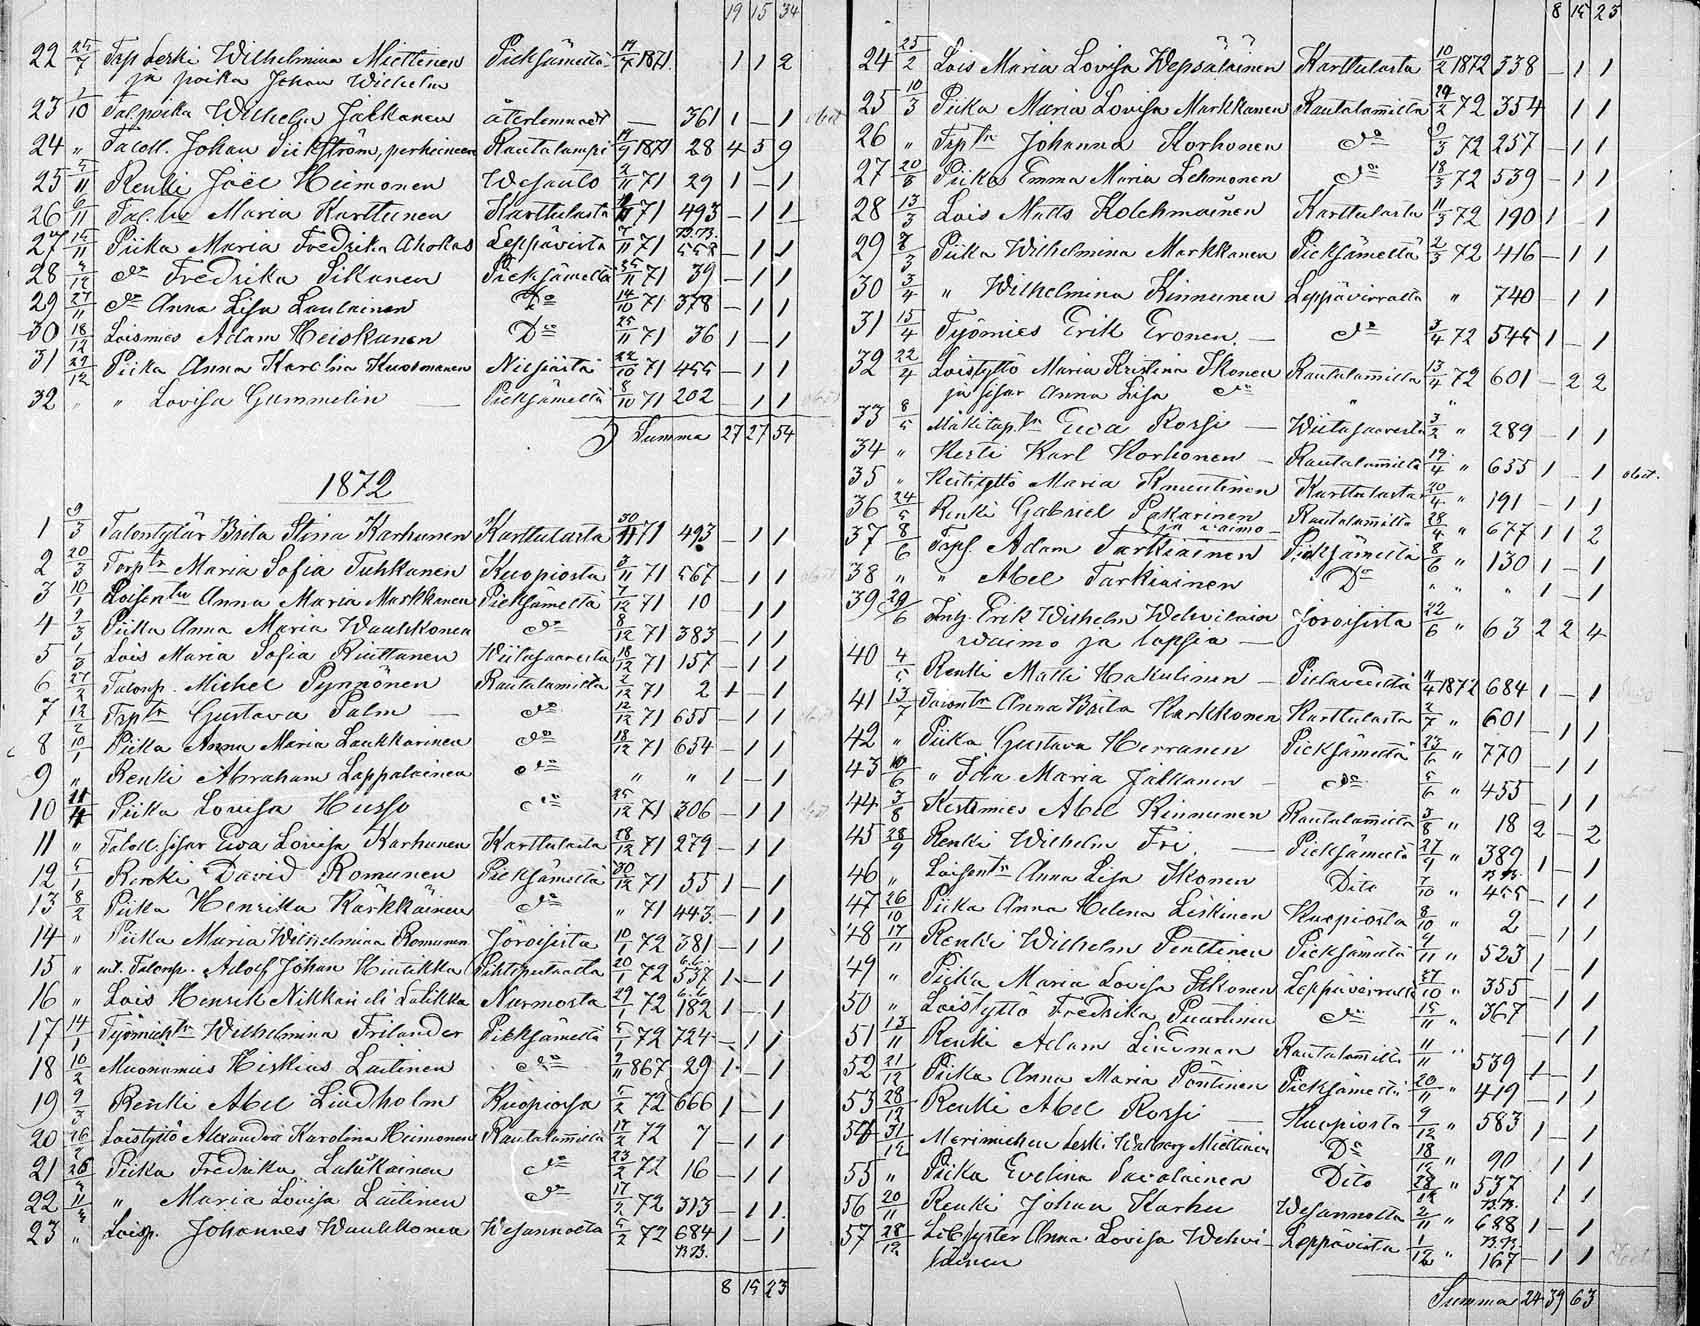 19 15 34
22 25/7 Trp Leski Wilhelmina Miettinen Pieksämeltä 14/7 1871 1 1 2
ja poika Johan Wilhelm
23 1/10 Talpoika Wilhelm Jalkanen återkomnadt — 361 1 — 1
24 " Taloll. Johan Siikström, perheineen Rautalampi 14/9 1871 28 4 5 9
25 5/11 Renki Joël Heimonen Wesanto 2/11 71 29 1 — 1
26 6/11 Tal.tr Maria Karttunen Karttulasta 71 493 — 1 1
27 15/11 Piika Maria Fredrika Ahokas Leppävirta 7/11 71 B.B. 557 — 1 1
28 3/12 do Fredrika Sikanen Pieksämeltä 25/11 71 39 — 1 1
29 27/11 do Anna Lisa Laulainen Do 14/10 71 378 — 1 1
30 18/12 Loismies Adam Heiskanen Do 25/11 71 36 1 — 1
31 29/12 Piika Anna Karolina Kuosmanen Nilsiästä 22/10 71 455 — 1 1
32 " " Lovisa Gummelin — Pieksämeltä 8/10 71 202 — 1 1
Summa 27 27 54
1872
1 9/3 Talontytär Brita Stina Karhunen Karttulasta 30/11 71 493 — 1 1
2 20/3 Torp tr Maria Sofia Tuhkanen Kuopiosta 3/11 71 567 — 1 1
3 10/1 Loisen tr Anna Maria Markkanen Pieksämeltä 7/12 71 10 — 1 1
4 1/3 Piika Anna Maria Wauhkonen do 8/12 71 383 — 1 1
5 Lois Maria Sofia Riuttanen Wiitasaaresta 18/12 71 157 — 1 1
6 27/2 Talonp. Michel Pynnönen Rautalamilta 2/12 71 2 1 — 1
7 12/2 Trp tr Gustava Palm — do 12/12 71 655 — 1 1
8 10/1 Piika Anna Maria Laukkarinen do 18/12 71 654 — 1 1
9 " Renki Abraham Lappalainen do " " 1 — 1
10 Piika Lovisa Husso do 25/12 71 306 — 1 1
11 " Taloll. sisar Ewa Lovisa Karhunen Karttulasta 28/12 71 279 — 1 1
12 5/1 Renki David Romunen Pieksämeltä 30/12 71 55 1 — 1
13 8/2 Piika Henrika Kärkkäinen do " 71 443 — 1 1
14 " Piika Maria Wilhelmina Romunen Joroisista 10/1 72 381 — 1 1
15 " Talonp. Adolf Johan Hintikka Pihtiputaalta 20/1 72 537 1 — 1
16 " Lois Henrik Nikkari eli Lalikka Nurmosta 29/1 72 182 1 — 1
17 14/1 Työmieh tr Wilhelmina Frilander Pieksämeltä 5/1 72 724 — 1 1
18 10/2 Muonamies Hiskias Laitinen do 9/11 867 29 1 — 1
19 9/3 Renki Abel Lindholm Kuopiosa 5/2 72 666 1 — 1
20 26/2 Loistyttö Alexandra Karolina Heimonen Rautalamilta 17/2 72 7 — 1 1
21 Piika Fredrika Lalukainen do 23/2 72 16 — 1 1
22 11/3 " Maria Lovisa Laitinen do 17/2 72 313 — 1 1
23 " Loisp. Johannes Wauhkonen Wesannolta 5/2 72 684 B.B. 1 — 1
8 15 23
8 15 23
24 25/2 Lois Maria Lovisa Wepsäläinen Karttulasta 10/2 1872 338 — 1 1
25 10/3 Piika Maria Lovisa Markkanen Rautalamilta 29/2 72 354 1 1
26 " Trp tr Johanna Korhonen do 9/3 72 257 — 1 1
27 20/3 Piika Emma Maria Lehmonen do 18/3 72 539 — 1 1
28 13/3 Lois Matts Kolehmainen Karttulasta 11/3 72 190 1 — 1
29 7/3 Piika Wilhelmina Markkanen Pieksämeltä 2/3 72 416 — 1 1
30 3/4 " Wilhelmina Kinnunen Leppävirralta " 740 — 1 1
31 15/4 Työmies Erik Eronen — do 3/4 72 545 1 — 1
32 22/4 Loistyttö Maria Kristina Ikonen Rautalamilta 13/4 72 601 — 2 2
ja sisar Anna Lisa do " "
33 8/5 Mäkitup. tr Ewa Rossi — Wiitasaaresta 3/2 " 289 — 1 1
34 " Kesti Karl Korhonen — Rautalamilta 19/4 " 655 1 — 1 obet.
35 " Hütityttö Maria Knuutinen Karttulasta 20/4 " 191 — 1 1
36 24/5 Renki Gabriel Pekarinen ja waimo Rautalamilta 28/4 " 677 1 1 2
37 8/6 Trpl. Adam Tarkiainen Pieksämeltä 8/6 " 130 1 — 1
38 " " Abel Tarkiainen Do " " " 1 — 1
39 29/6 Erik Wilhelm Wehviläinen Joroisista 22/6 " 63 2 2 4
waimo ja lapsia —
40 4/5 Renki Matti Hakulinen — Pielavedeltä 11/4 1872 684 1 — 1
41 13/7 Talon tr Anna Brita Karkkonen Karttulasta 2/7 " 601 — 1 1
42 " Piika Gustava Herranen Pieksämeltä 23/6 " 770 — 1 1
43 10/6 " Ida Maria Jalkanen — do 5/6 " 455 — 1 1
44 3/8 Kestimies Abel Kinnunen Rautalamilta 3/8 " 18 2 — 2
45 28/9 Renki Wilhelm Fri. — Pieksämeltä 27/9 " 389 1 — 1
46 " Loisen tr Anna Lisa Ikonen Dito 7/10 " B.B. 455 — 1 1
47 26/10 Piika Anna Helena Leskinen Kuopiosta 8/10 " 2 — 1 1
48 17/11 Renki Wilhelm Penttinen Pieksämeltä 9/11 " 523 1 — 1
49 " Piika Maria Lovisa Ikonen Leppävirralta 27/10 " 355 — 1 1
50 " Loistyttö Fredrika Puurtinen do 15/11 " 367 — 1 1
51 13/11 Renki Adam Lindman Rautalamilta 11/11 " 539 1 — 1
52 21/12 Piika Anna Maria Pöntinen Pieksämeltä 20/11 " 419 — 1 1
53 28/12 Renki Abel Rossi — Kuopiosta 9/12 " 583 1 — 1
54 31/12 Merimiehen leski Walborg Miettinen Do 18/12 " 90 — 1 1
55 " Piika Evelina Savolainen Dito 28/12 " 537 1 1
56 20/11 Renki Johan Karhu Wesannolta 2/11 " B.B. 688 1 — 1
57 28/12 Anna Lovisa Wehvi- Leppävirta 1/12 " B.B. 167 — 1 1
läinen
Summa 24 39 63